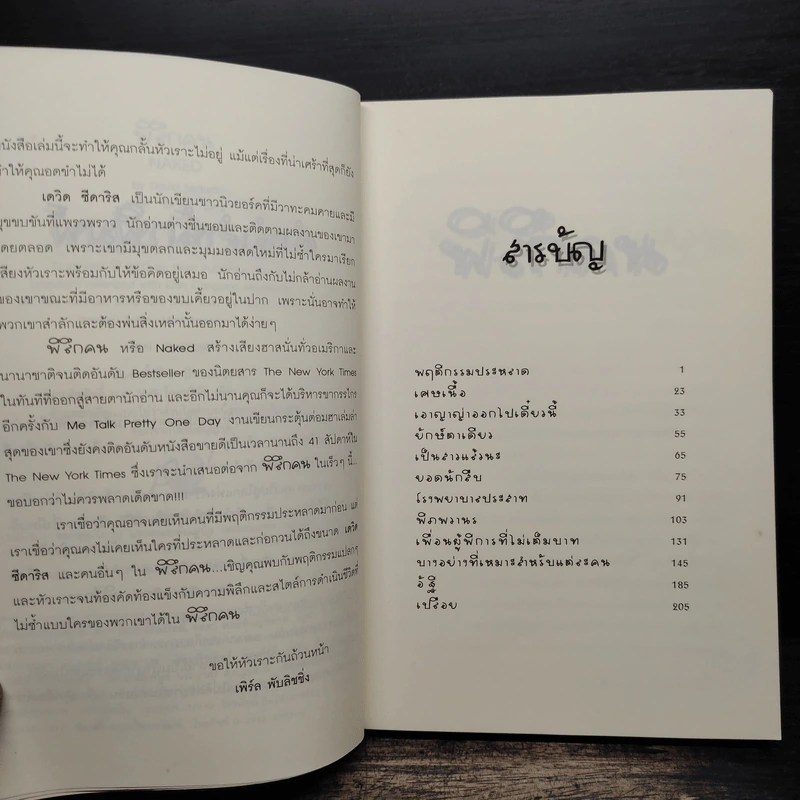 หนังสือเล่มนี้จะทำให้คุณกลั้นหัวเราะไม่อยู่ แม้แต่เรื่องที่น่าเศร้าที่สุดก็ยัง
ทำให้คุณอดขำไม่ได้
เดวิด ซีดาริส เป็นนักเขียนชาวนิวยอร์คที่มีวาทะคมคายและมี
มุขขบขันที่แพรวพราว นักอ่านต่างชื่นชอบและติดตามผลงานของเขามา
โดยตลอด เพราะเขามีมุขตลกและมุมมองสดใหม่ที่ไม่ซ้ำใครมาเรียก
เสียงหัวเราะพร้อมกับให้ข้อคิดอยู่เสมอ นักอ่านถึงกับไม่กล้าอ่านผลงาน
ของเขาขณะที่มีอาหารหรือของขบเคี้ยวอยู่ในปาก เพราะนั่นอาจทำให้
พวกเขาสำลักและต้องพ่นสิ่งเหล่านั้นออกมาได้ง่ายๆ
พิรึกคน หรือ Naked สร้างเสียงฮาสนั่นทั่วอเมริกาและ
นานาชาติจนติดอันดับ Bestseller ของนิตยสาร The New York Times
ในทันทีที่ออกสู่สายตานักอ่าน และอีกไม่นานคุณก็จะได้บริหารขากรรไกร
อีกครั้งกับ Me Talk Pretty One Day งานเขียนกระตุ้นต่อมฮาเล่มล่า
สุดของเขาซึ่งยังคงติดอันดับหนังสือขายดีเป็นเวลานานถึง 41 สัปดาห์ใน
The New York Times ซึ่งเราจะนำเสนอต่อจาก พิรึกคน ในเร็วๆ นี้...
ขอบอกว่าไม่ควรพลาดเด็ดขาด!!!
เราเชื่อว่าคุณอาจเคยเห็นคนที่มีพฤติกรรมประหลาดมาก่อน แต่
เราเชื่อว่าคุณคงไม่เคยเห็นใครที่ประหลาดและก่อกวนได้ถึงขนาด เดวิด
ซีดาริส และคนอื่นๆ ใน พิรึกคน...เชิญคุณพบกับพฤติกรรมแปลกๆ
และหัวเราะจนท้องคัดท้องแข็งกับความพิลึกและสไตล์การดำเนินชีวิตที่
ไม่ซ้ำแบบใครของพวกเขาได้ใน พิรึกคน
ขอให้หัวเราะกันถ้วนหน้า
เพิร์ล พับลิชชิ่ง
สารบัญ
พฤติกรรมประหลาด 1
เศษเนื้อ 23
เอาญาญ่าออกไปเดี๋ยวนี้ 33
ยักษ์ตาเดียว 55
เป็นสาวแล้วนะ 65
ยอดนักสืบ 75
โรงพยาบาลประสาท 91
พิภพวานร 103
เพื่อนผู้พิการที่ไม่เต็มบาท 131
บางอย่างที่เหมาะสำหรับแต่ละคน 145
อัฐิ 185
เปลือย 205